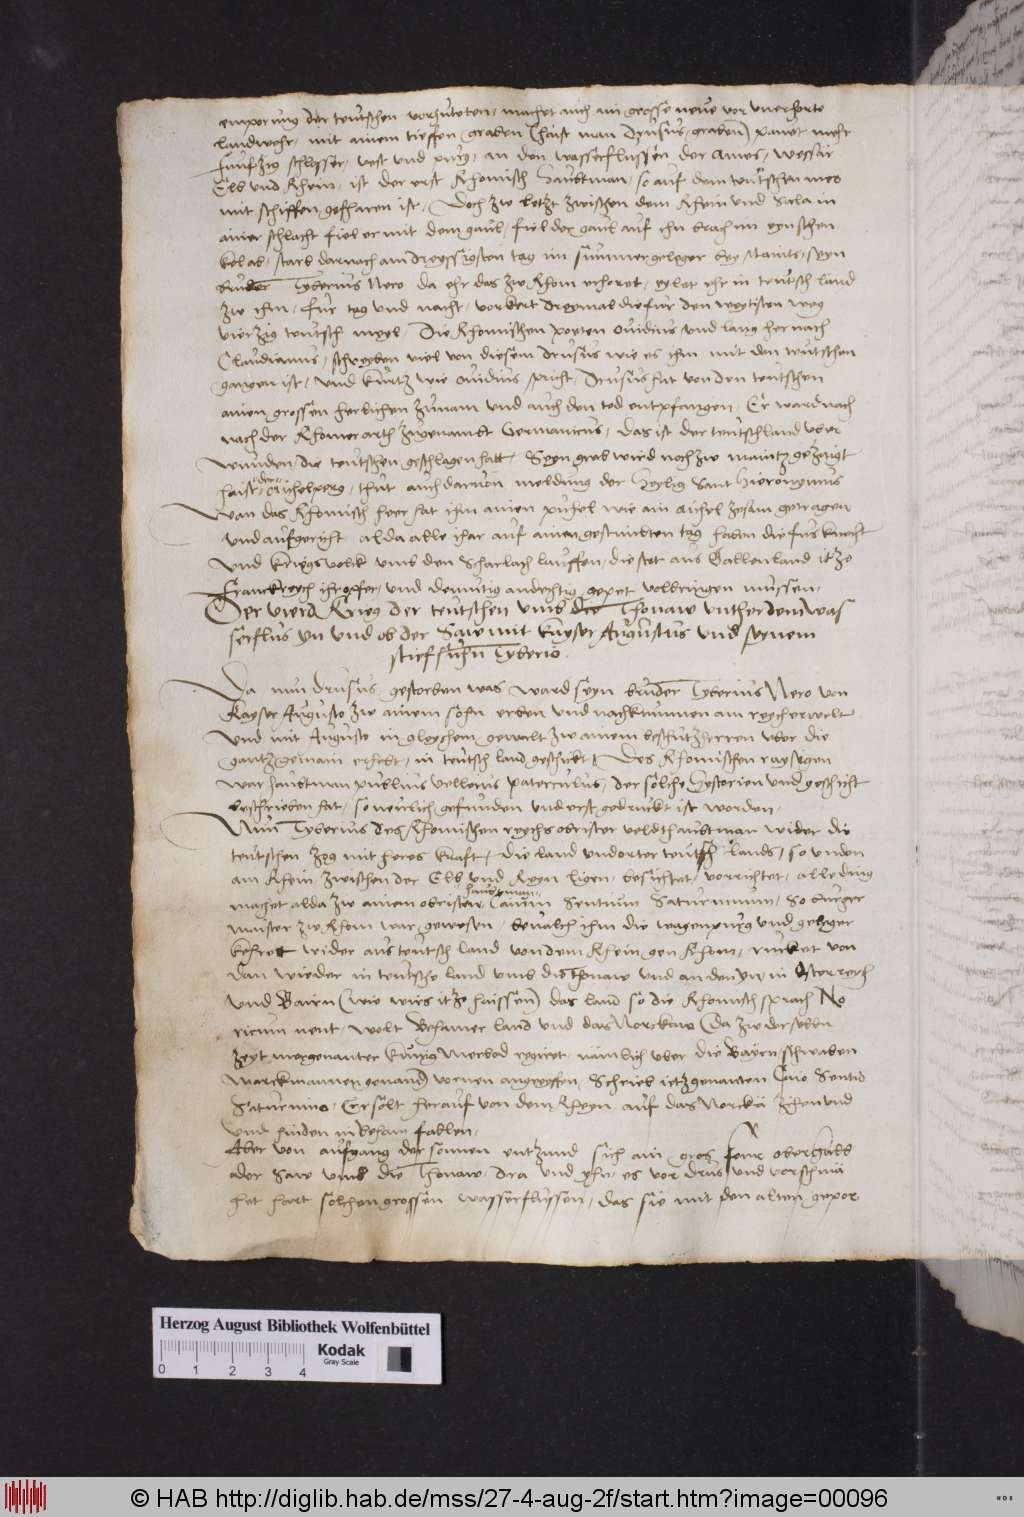 emporung der teutschen vorzukomen, machet auch ain grosse neue vor unerhorte
landwehr, mit ainem tieffen graben (haist man Drusus graben) pauet mehr
funfzig schlosser, vest und purg, an den wasserflussen der Ames, Wessar
Elb und Rhein, ist der erst Rhomisch haubtman, so auf dem teutschen mer
mit schiffen gefharen ist, Doch zw letzt zwischen dem Rhein und Sala in
ainer schlacht fiel er mit dem gaul, fiel der gaul auf ihn brach im eyn schen
kel ab, starb darnach am dreyssigsten tag im summer geleger bey Maints, seyn
bruder Tyberius Nero da ehr das zw Rhom erhoret, eylet ehr in teutsch land
zw ihm, fur tag und nacht, vorkert dreymal die fur den weytisten weg
vierzig teutsch meyl. Die Rhomischen poeten Ovidius und lang hernach
Claudianus, schreyben viel von diesem Drusus wie es ihm mit den teutschen
gangen ist, und kurtz wie Ovidius spricht, Drusus hat von den teutschen
ainen grossen herlichen zunam und auch den tod entpfangen, Er ward nach
nach der Rhomer arth zugenambt Germanicus, das ist der teutschland uber
wunden, die teutschen geschlagen hatt, Seyn grab wird noch zw maintz gezaigt
haist der Aichelperg, thut auch darvon meldung der heylig Sant Hieronymus
Wan das Rhomisch heer hat ihm ainen puhel wie ain aichel zesam getragen
und aufgericht alda alle ihar auf ainen gestimbten tag haben die fus knecht
und kriegsvolck umb den Scharlach lauffen, die stet aus Gallenland itzo
Franckreych ihr opfer, und demutig andechtig gepet volbringen mussen.
Der vierd krieg der teutschen umb die Thonaw unther dem was
serflus Yn und ob der Saw mit kayser Augustus und seynem
stiefsuhn Tyberio.
Da nun Drusus gestorben was ward seyn bruder Tyberius Nero von
kayser Augusto zw ainem sohn erben und nachkummen am reych erwelt
und mit Augusto in gleychem gewalt zw ainem beschutzherren uber die
gantz gemain erhebt, in teutsch land geschickt, Des Rhomischen raysigen
war haubtman publius vellerus paterculus, der solche hystorien und geschicht
beschrieben hat, so neulich gefunden und erst gedruckt ist worden.
Nun Tyberius des Rhomischen reychs obrister veldthaubtman wider die
teutschen zog mit heres kraft, die land und orter teutsch lands, so unden
am Rhein, zwischen der Elb und Reyn ligen, besichtet, vorrichtet, alle ding
machet alda zw ainem obristen haubtman Caium Sentium Saturninum, So burger
maister zw Rhom war gewesen, bevalch ihm die wagenpurg und geleger
kehret wider aus teutsch land von dem Rhein gen Rhom, rucket von
dan wieder in teutsche land umb die Thonaw und an den yn, in Osterreych
und Bairn (wie wirs itzo haissen) das land so die Rhomisch sprach No
ricum nent, wolt Behamer land und das Norckaw (Da zw derselben
zeyt mergenanter kunig Merbod regiret, nämlich uber die Bayrn schwaben
Marckmannen genand) vornen angreyffen, Schrieb ietzgenanten Caio Sentio
Saturnino, Er solt herauf von dem Rheyn auf das Norckä zihen und
und hinden in behaim fallen.
Aber von aufgang der sonnen entzund sich ain gros feur oberhalb
der Saw umb die Thonaw, Dra und yhn, es vor drus und vorschmä
het hart solchen grossen wasserflussen, das sie mit den alten gepor
Herzog August Bibliothek Wolfenbüttel
0 1 2 3 4
Kodak
Gray Scale
© HAB http://diglib.hab.de/mss/27-4-aug-2f/start.htm?image=00096